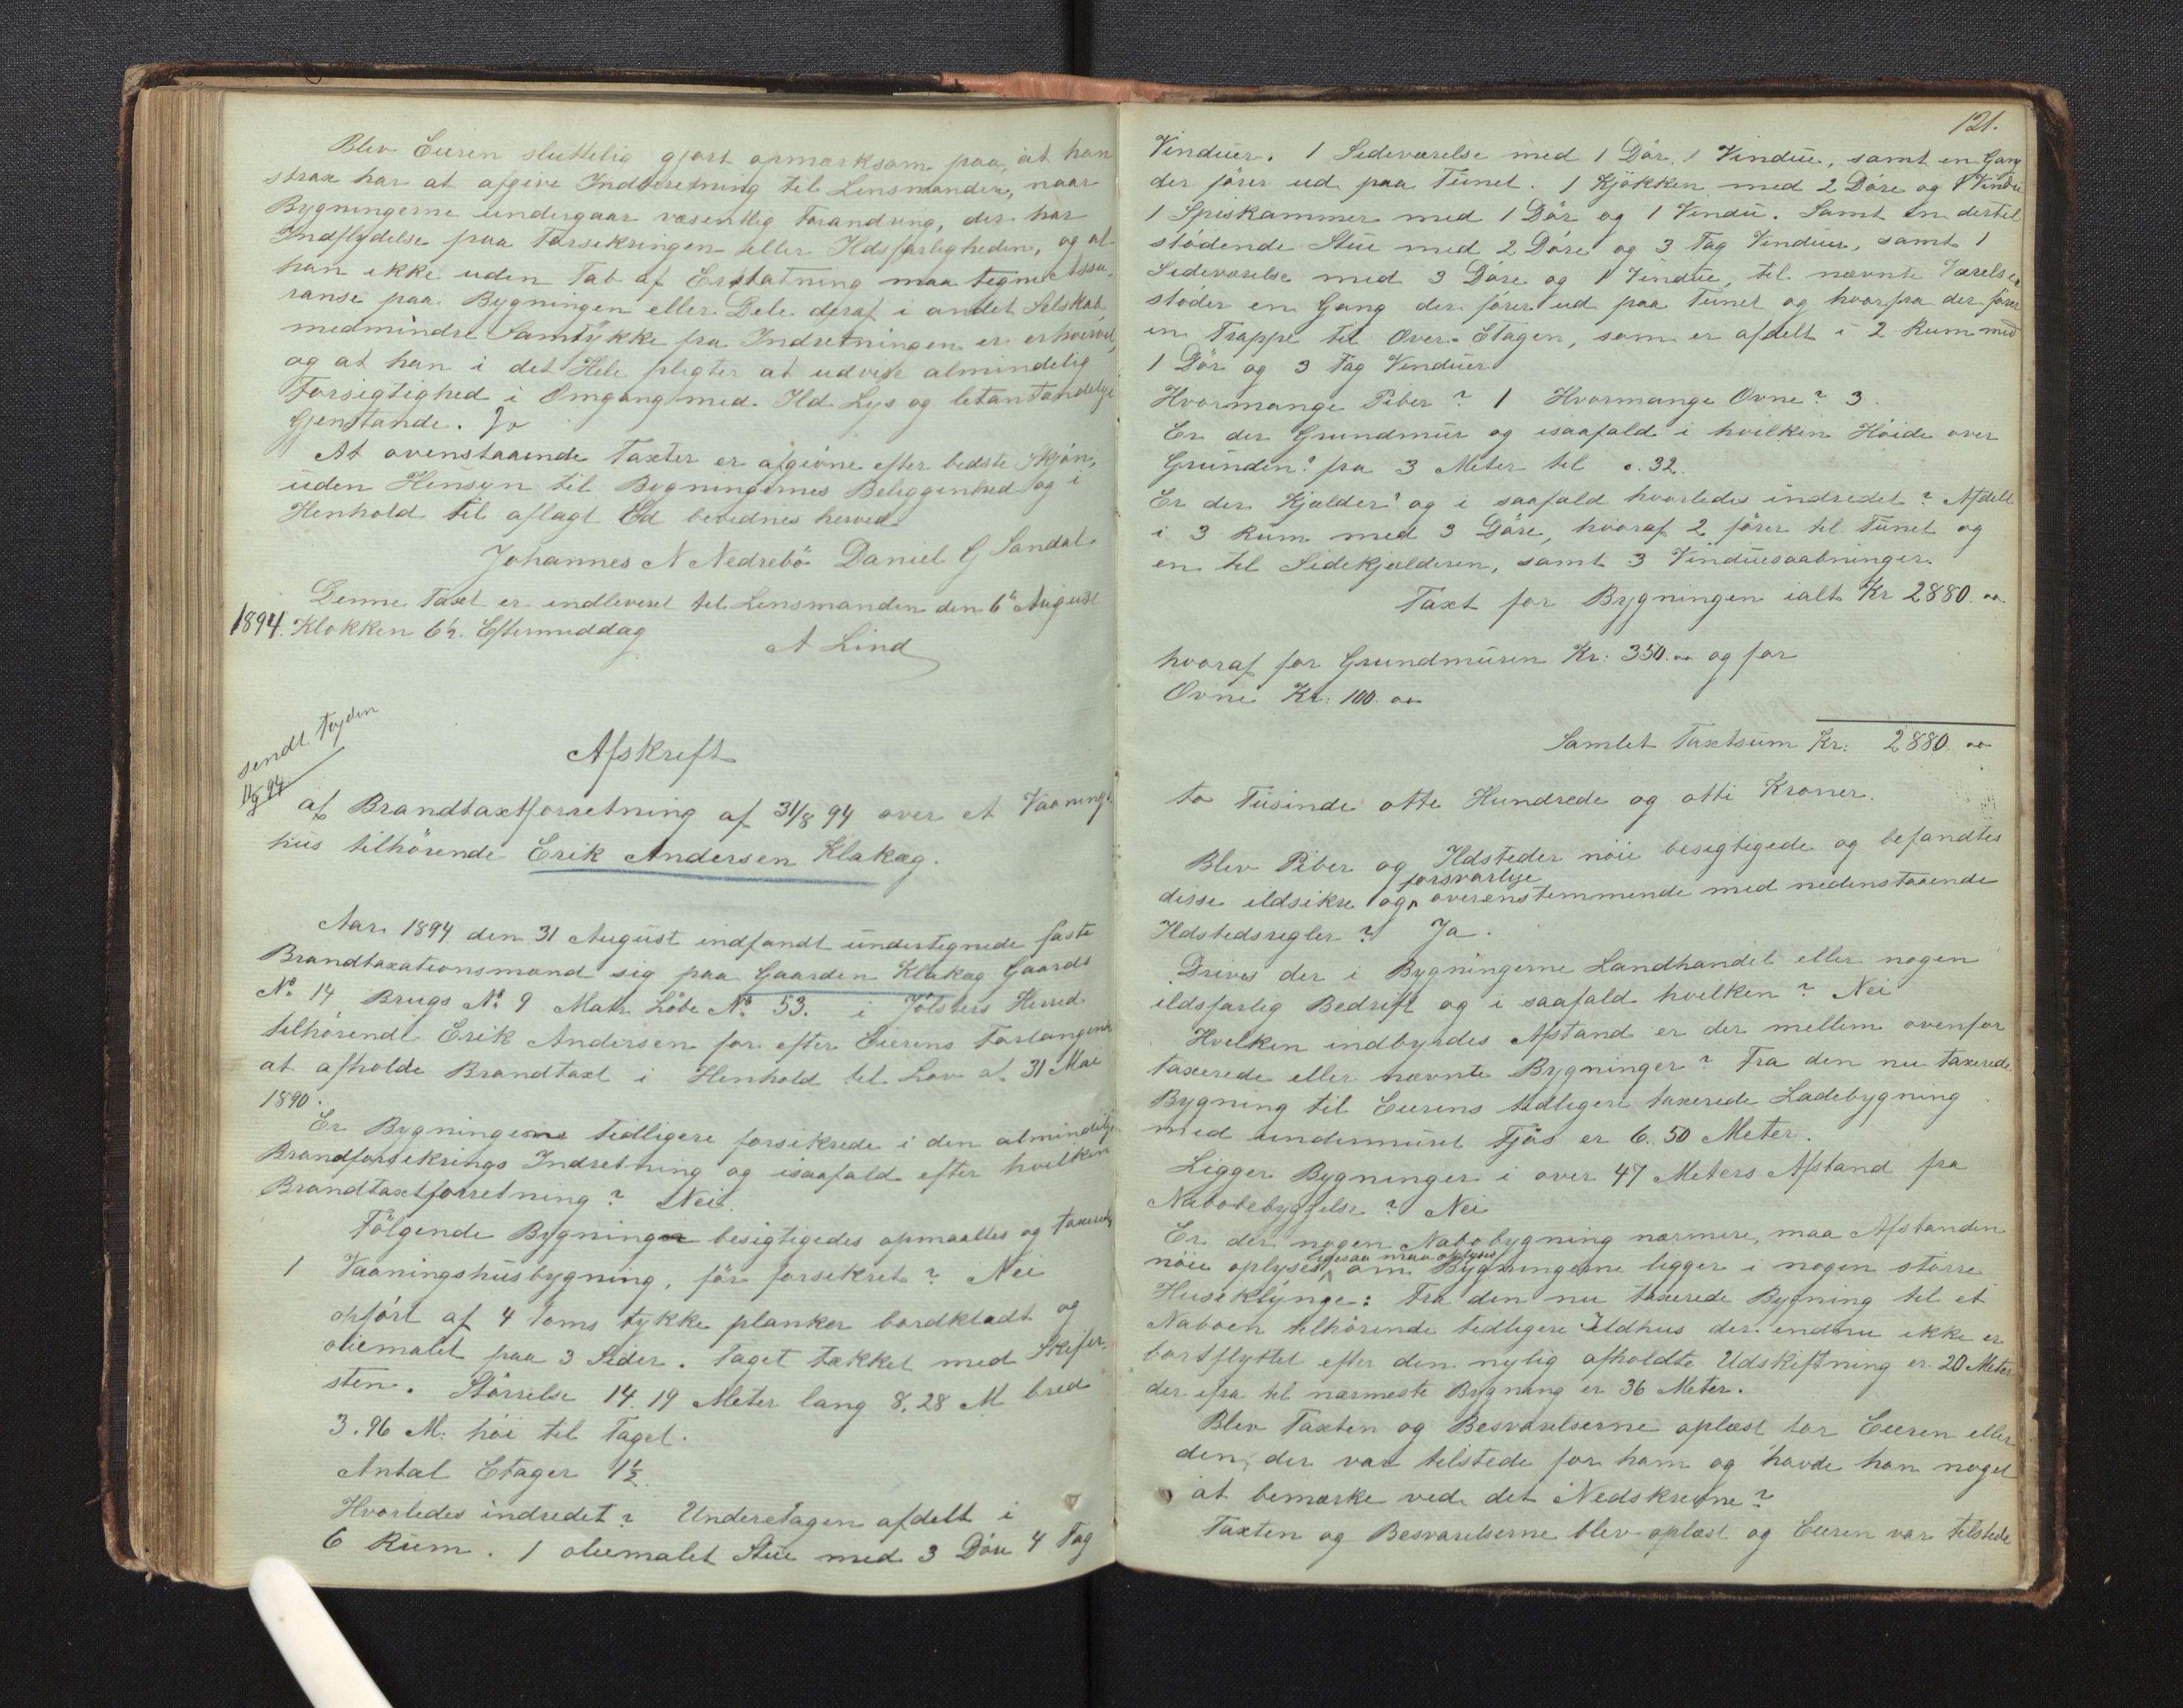 Blev Eieren sluttelig gjort opmærksom paa, at han
strax har at afgive Indberetning til Lensmanden, naar
Bygningerne undergaar væsentlig Forandring, der har
Indflydelse paa Forsekringen eller Ildsfarligheden, og at
han ikke uden Tab af Erstatning maa tegne Assu-
ranse paa Bygningen eller Dele deraf i andet Selskab,
medmindre Samtykke fra Indretningen er erhvervet,
og at han i det Hele pligter at udvise almindelig
Forsigtighed i Omgang med Ild Lys og letantændelige
Gjenstande. Jo
At ovenstaaende Taxter er afgivne efter bedste Skjøn,
uden Hensyn til Bygningernes Beliggenhed og i
Henhold til aflagt Ed bevidnes herved
Johannes N Nedrebö Daniel G Sandal.
Denne Taxt er indleveret til Lensmanden den 6te August
1894. Klokken 6½ Eftermiddag
A Lind
sendt Fogden
11/9 94
Afskrift
af Brandtaxtforretning af 31/8 94 over et Vaanings
hus tilhörende Erik Andersen Klakæg.
Aar 1894 den 31 August indfandt undertegnede faste
Brandtaxationsmænd sig paa Gaarden Klakæg Gaards
No 14 Brugs No 9 Matr. Löbe No 53. i Jölsters Herred
tilhörende Erik Andersen for efter Eierens Forlangende
at afholde Brandtaxt i Henhold til Lov af 31 Mai
1890.
Er Bygningerne tidligere forsikrede i den almindelige
Brandforsikrings Indretning og isaafald efter hvilken
Brandtaxtforretning? Nei.
Fölgende Bygninger besigtigedes opmaaltes og taxeredes
1 Vaaningshusbygning, för forsekret? Nei
opfört af 4 Toms tykke planker bordklædt og
oliemalet paa 3 Sider. Taget tækket med Skifer-
sten. Störrelse 14.19 Meter lang 8.28 M bred
3.96 M. höi til Taget.
Antal Etager 1½
Hvorledes indredet? Underetagen afdelt i
6 Rum. 1 oliemalet Stue med 3 Döre 4 Fag
121.
Vinduer. 1 Sideværelse med 1 Dör, 1 Vindue, samt en Gang
der förer ud paa Tunet. 1 Kjökken med 2 Döre og 1 Vindu
1 Spiskammer med 1 Dör og 1 Vindu. Samt en dertil
stödende Stue med 2 Döre og 3 Fag Vinduer, samt 1
Sideværelse med 3 Döre og 1 Vindue, til nævnte Værelse
stöder en Gang der förer ud paa Tunet og hvorfra der förer
en Trappe til Over-Etagen, som er afdelt i 2 Rum med
1 Dör og 3 Fag Vinduer
Hvormange Piber? 1 Hvormange Ovne? 3.
Er der Grundmur og isaafald i hvilken Höide over
Grunden? fra 3 Meter til 0.32.
Er der Kjælder? og i saafald hvorledes indredet? Afdelt
i 3 Rum med 3 Döre, hvoraf 2 förer til Tunet og
en til Sidekjælderen, samt 3 Vinduesaabninger.
Taxt for Bygningen ialt Kr 2880.00
hvoraf for Grundmuren Kr: 350.00 og for
Ovne Kr: 100.00
Samlet Taxtsum Kr: 2880.00
to Tusinde otte Hundrede og otti Kroner.
Blev Piber og Ildsteder nöie besigtigede og befandtes
disse ildsikre og forsvarlige overenstemmende med nedenstaaende
Ildstedsregler? Ja.
Drives der i Bygningerne Landhandel eller nogen
ildsfarlig Bedrift og i saafald hvilken? Nei
Hvilken indbyrdes Afstand er der mellem ovenfor
taxerede eller nævnte Bygninger? Fra den nu taxerede
Bygning til Eierens tidligere taxerede Ladebygning
med undermuret Fjös er 6.50 Meter.
Ligger Bygninger i over 47 Meters Afstand fra
Nabobebyggelse? Nei
Er der nogen Nabobygning nærmere, maa Afstanden
nöie oplyses, ligesaa maa oplyses om Bygningerne ligger i nogen större
Huseklynge: Fra den nu taxerede Bygning til et
Naboen tilhörende tidligere Ildhus der endnu ikke er
bortflyttet efter den nylig afholdte Udskiftning er 20 Meter
der ifra til nærmeste Bygning er 36 Meter.
Blev Taxten og Besvarelserne oplæst for Eieren eller
den, der var tilstede for ham og havde han noget
at bemærke ved det Nedskrevne?
Taxten og Besvarelserne blev oplæst og Eieren var tilstede